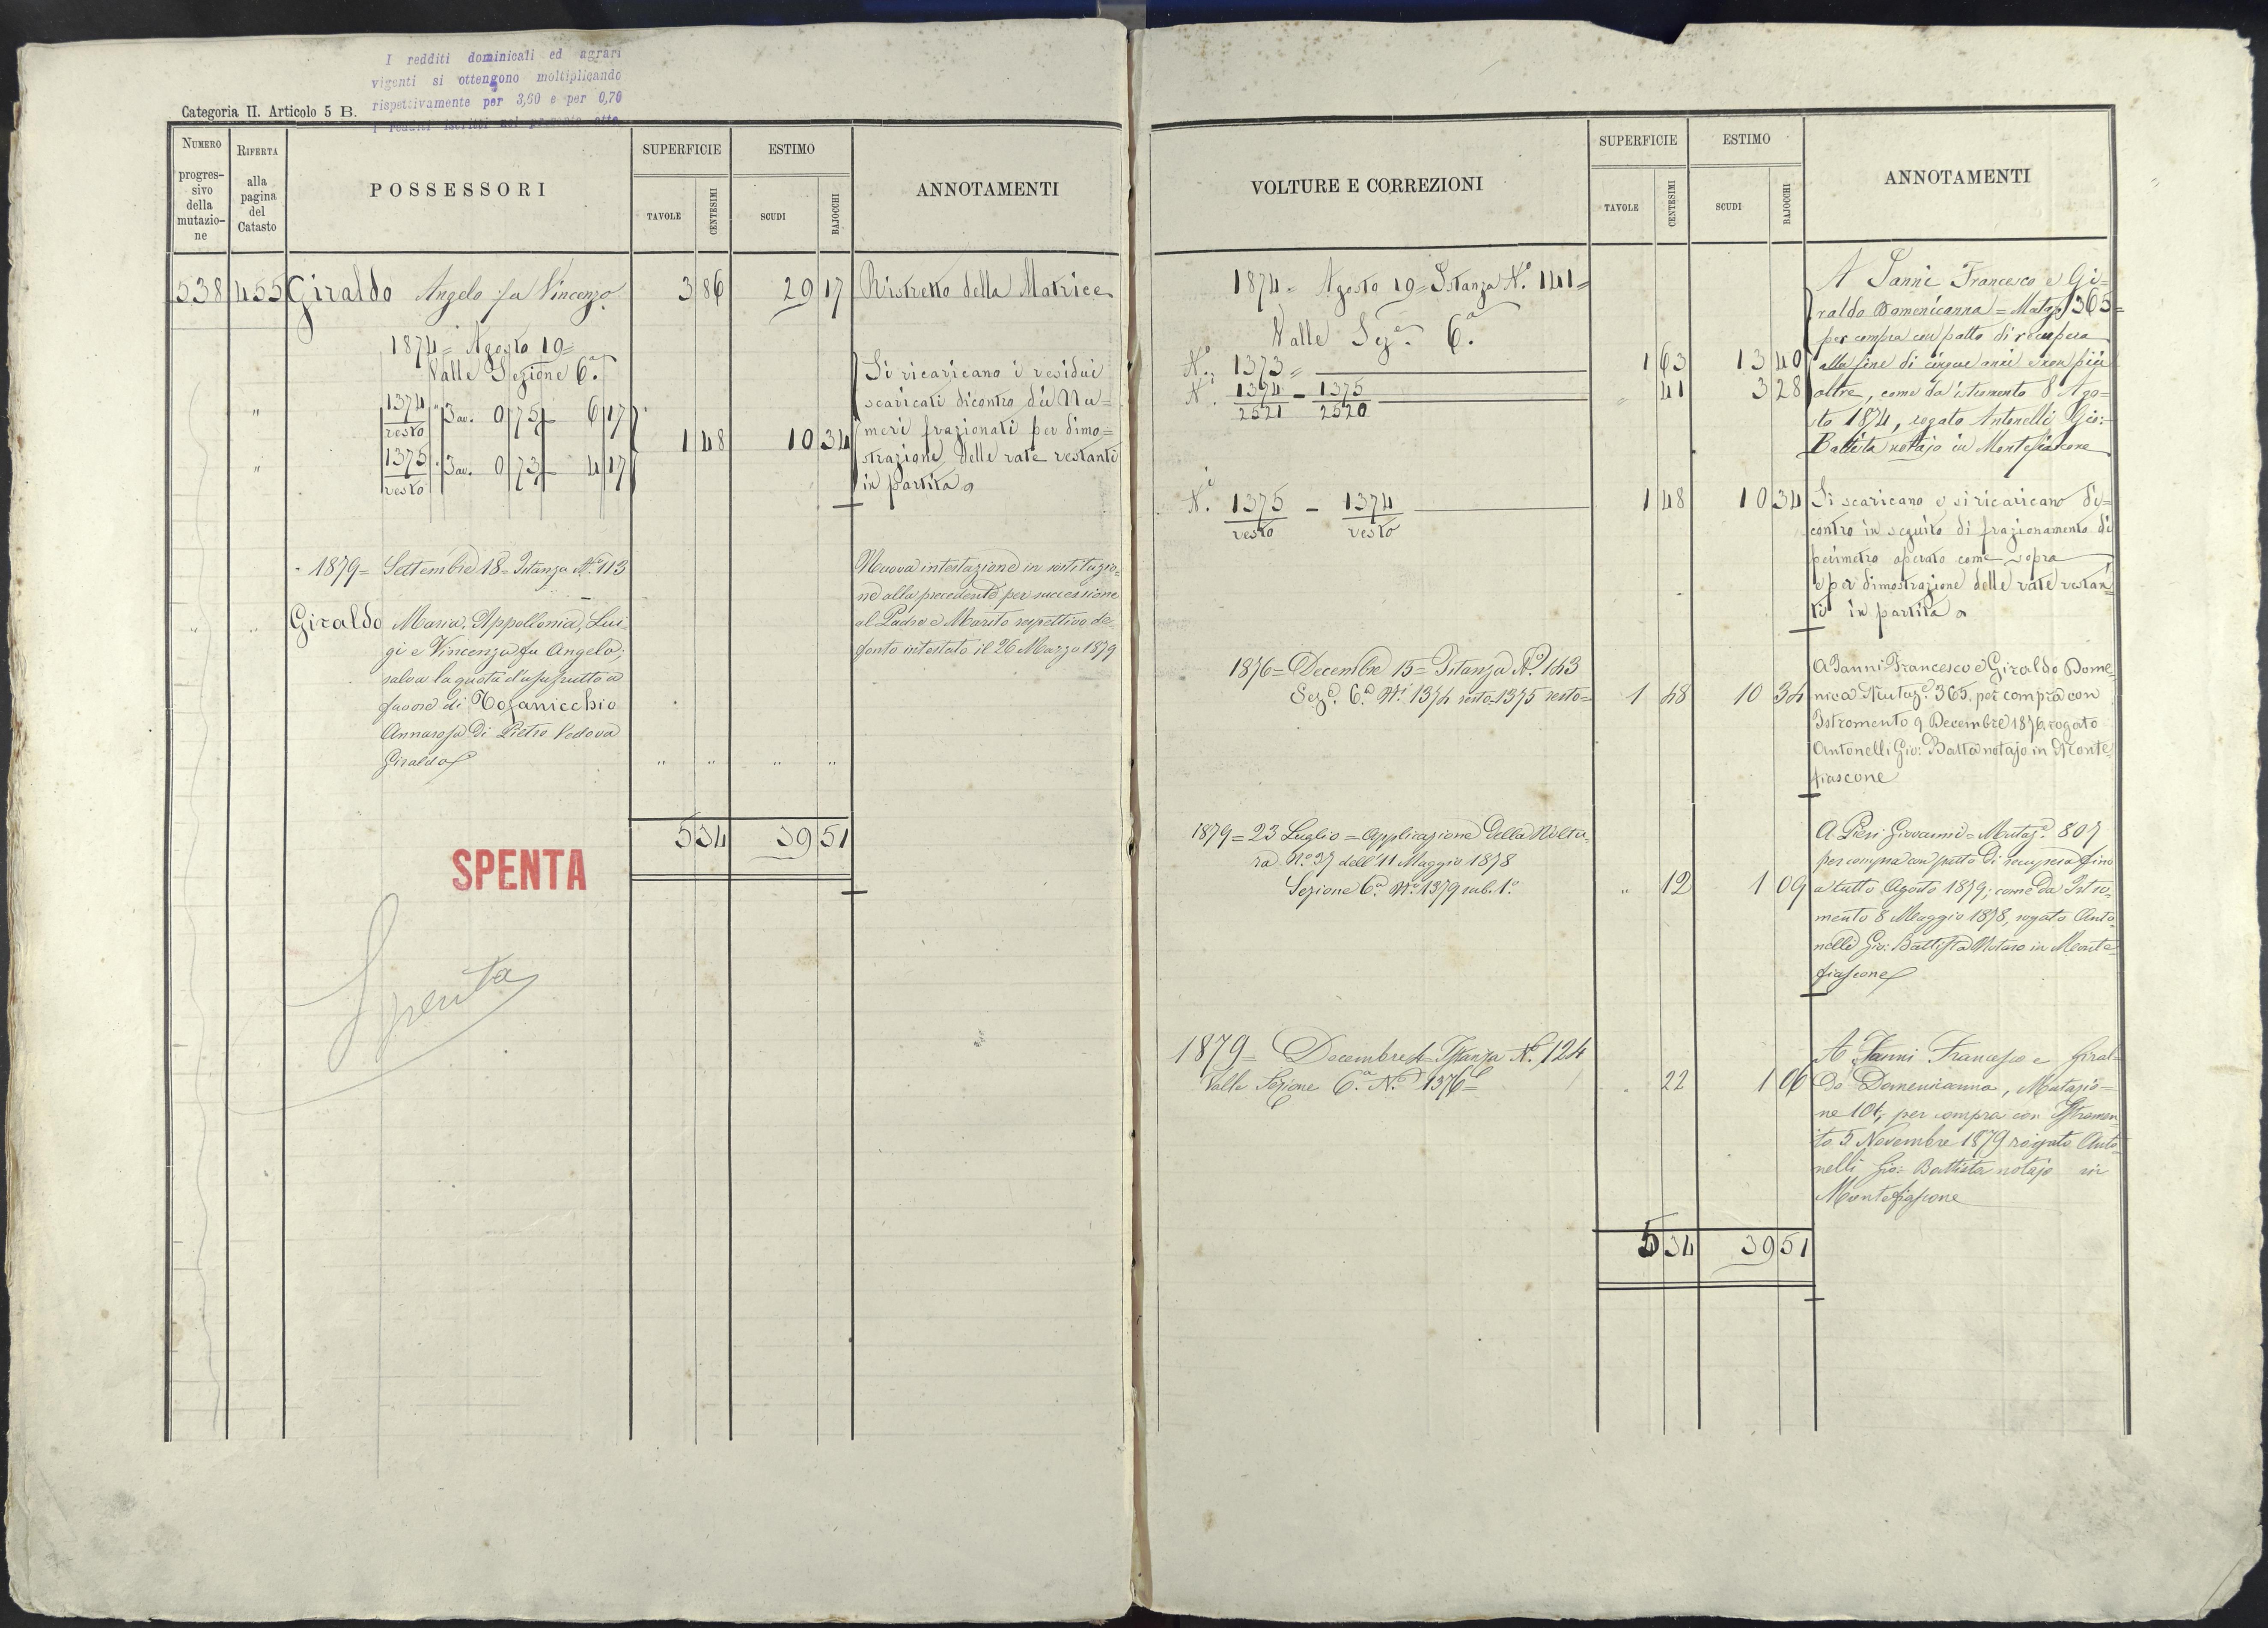 I redditi dominicali ed agrari
vigenti si ottengono moltiplicando
rispettivamente per 3,60 e per 0,70
i redditi iscritti nel presente atto.
Categoria II. Articolo 5 B.
NUMERO progres-
sivo
della
mutazio-
ne
RIFERTA
alla
pagina
del
Catasto
POSSESSORI
SUPERFICIE
TAVOLE
CENTESIMI
ESTIMO
SCUDI
BAJOCCHI
ANNOTAMENTI
538 455 Giraldo Angelo fu Vincenzo 3 86 29 17 Ristretto della Matrice
1874 = Agosto 19 =
Valle Sezione 6.a
1374 resto Tav. 0 75 6 17
1375 resto Tav. 0 73 4 17
1 48 10 34
Si ricaricano i residui
scaricati dicontro dei Nu=
meri frazionati per dimo=
strazione delle rate restanti
in partita
1879 = Settembre 18 = Istanza N.o 113
Giraldo Maria, Appollonia, Lui
gi e Vincenza fu Angelo;
salva la quota d'usufrutto a
favore di Tofanicchio
Annarosa di Pietro Vedova
Giraldo
" " " "
Nuova intestazione in sostituzio=
ne alla precedente per successione
al Padre e Marito respettivo de=
fonto intestato il 26 Marzo 1879
5 34 39 51
SPENTA
Spenta
VOLTURE E CORREZIONI
SUPERFICIE
TAVOLE
CENTESIMI
ESTIMO
SCUDI
BAJOCCHI
ANNOTAMENTI
1874 = Agosto 19 = Istanza N.o 141 =
Valle Sez.e 6.a
N.i 1373 = 1 63 13 40
N. 1374/2521 - 1375/2520 " 41 3 28
A Janni Francesco e Gi=
raldo Domenicanna = Mutaz. 365 =
per compra con patto di recupera
alla fine di cinque anni e non più
oltre, come da istromento 8 Ago=
sto 1874, rogato Antonelli Gio:
Battista notajo in Montefiascone
N.i 1375 resto - 1374 resto 1 48 10 34
Si scaricano e si ricaricano di=
contro in seguito di frazionamento di
perimetro operato come sopra
e per dimostrazione delle rate restan=
ti in partita
1876 = Decembre 15 = Istanza N.o 163
Sez.e 6.a N.i 1374 resto = 1375 resto = 1 48 10 34
A Janni Francesco e Giraldo Dome=
nica Mutaz.e 365. per compra con
Istromento 9 Decembre 1876, rogato
Antonelli Gio: Batta notajo in Monte=
fiascone
1879 = 23 Luglio = Applicazione della Voltu=
ra N.o 37 dell'11 Maggio 1878
Sezione 6.a N.o 1379 sub. 1.o " 12 1 09
A Pieri Giovanni = Mutaz.e 807
per compra con patto di recupera fino
a tutto Agosto 1879; come da Istro=
mento 8 Maggio 1878, rogato Anto=
nelli Gio: Battista Notaro in Monte=
fiascone
1879 = Decembre 4 = Istanza N.o 124
Valle Sezione 6.a N.o 1376 = " 22 1 06
A Janni Francesco e Giral=
do Domenicanna, Mutazio=
ne 101, per compra con Istromen=
to 5 Novembre 1879 rogato Anto=
nelli Gio: Battista notajo in
Montefiascone
5 34 39 51